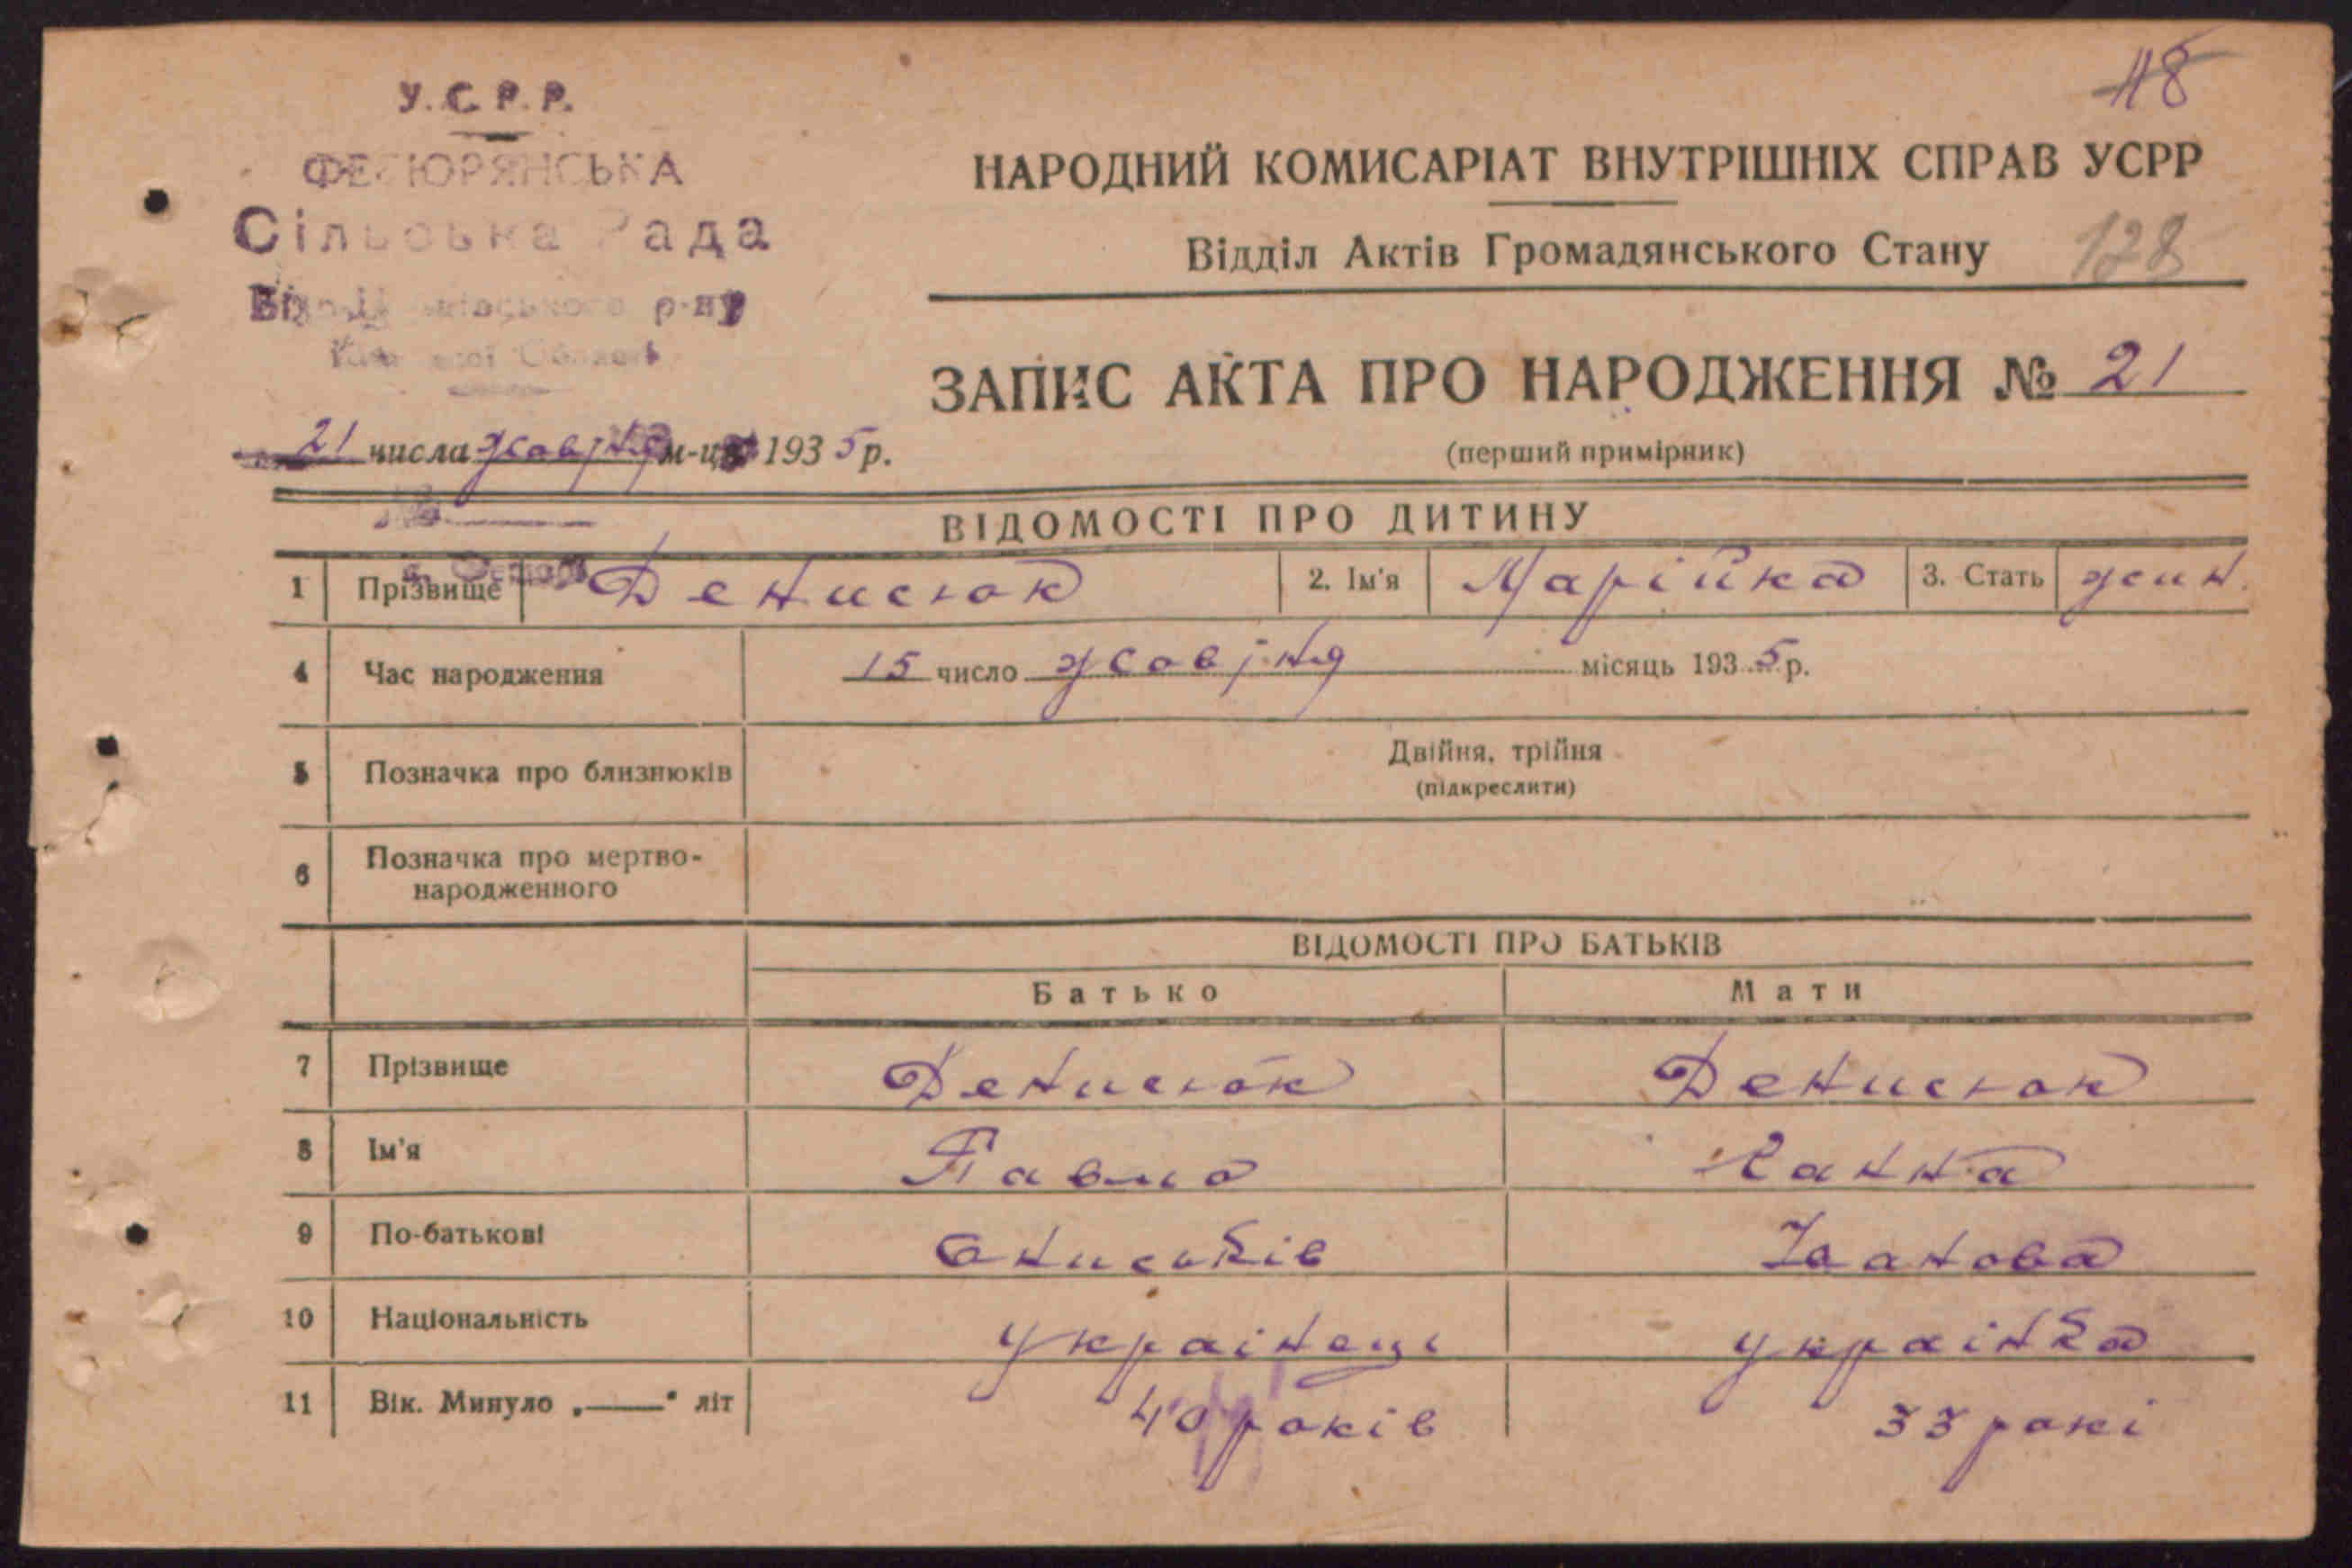 У.С.Р.Р.
ФЕСЮРЯНСЬКА
Сільська Рада
р-ну
21 числа жовтня м-ця 1935 р.
118
НАРОДНИЙ КОМИСАРІАТ ВНУТРІШНІХ СПРАВ УСРР
Відділ Актів Громадянського Стану 128
ЗАПИС АКТА ПРО НАРОДЖЕННЯ № 21
(перший примірник)
ВІДОМОСТІ ПРО ДИТИНУ
1 Прізвище Денисюк 2. Ім'я Марійка 3. Стать жін.
4 Час народження 15 число жовтня місяць 1935 р.
5 Позначка про близнюків Двійня, трійня
(підкреслити)
6 Позначка про мертво-
народженного
ВІДОМОСТІ ПРО БАТЬКІВ
Батько Мати
7 Прізвище Денисюк Денисюк
8 Ім'я Павло Ганна
9 По-батькові Ониськів Іванова
10 Національність Українець Українка
11 Вік. Минуло „——" літ 40 років 33 рокі